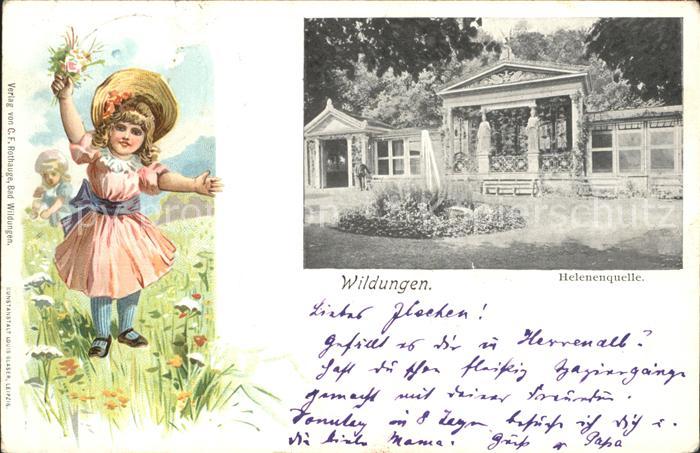 Verlag von C. F. Rothauge, Bad Wildungen.
KUNSTANSTALT LOUIS GLASER, LEIPZIG.
Wildungen.
Helenenquelle.
Liebes Ilschen!
Gefällt es dir in Herrenalb?
Hast du schon fleißig Spaziergänge
gemacht mit deiner Freundin.
Sonntag in 8 Tagen besuche ich dich u.
die liebe Mama. Gruß v Papa